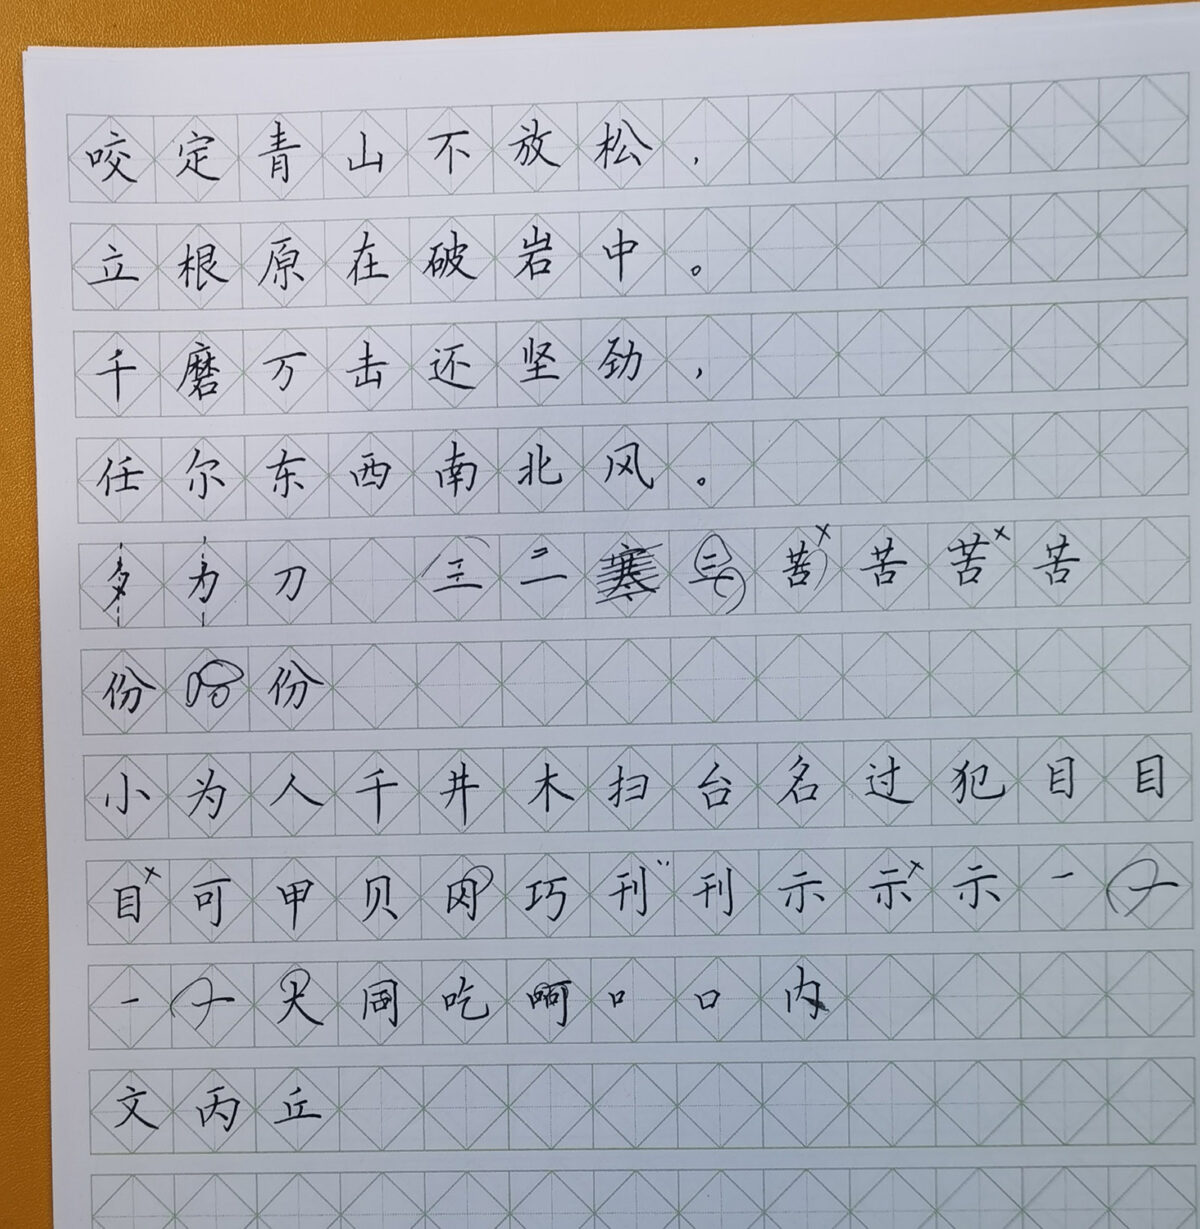 咬定青山不放松，
立根原在破岩中。
千磨万击还坚劲，
任尔东西南北风。
多为刀 三二寒三苦苦苦苦
份份
小为人千井木扫台名过犯目目
目可甲贝内巧刊刊示示示一
一犬同吃啊口口内
文丙丘